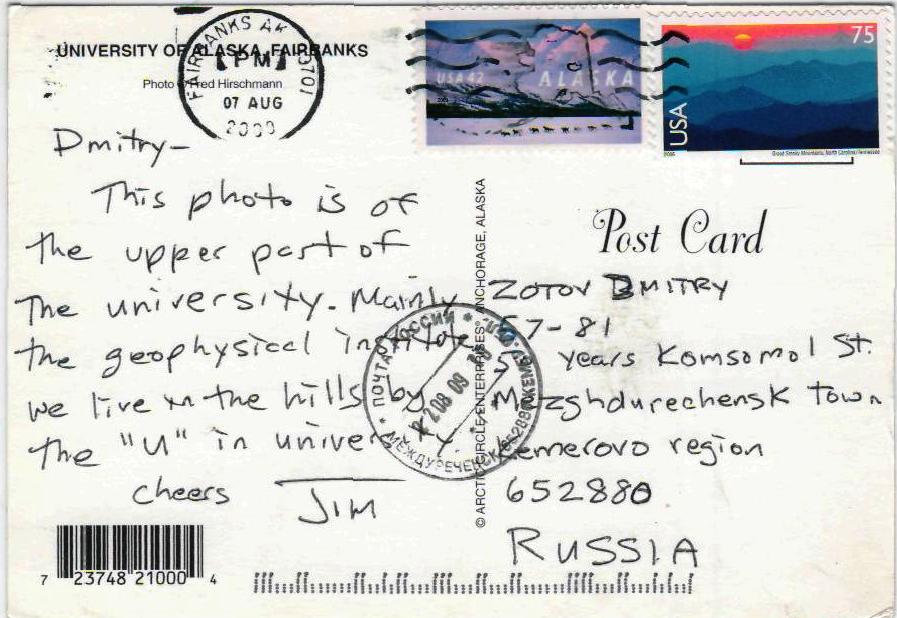 UNIVERSITY OF ALASKA, FAIRBANKS
Photo © Fred Hirschmann
FAIRBANKS AK
PM
07 AUG
2009
USA 42
ALASKA
75
USA
Great Smoky Mountains, North Carolina/Tennessee
Dmitry-
This photo is of
the upper part of
The university. Mainly
the geophysical institute
we live in the hills by
the "U" in university.
cheers
JIM
© ARCTIC CIRCLE ENTERPRISES® ANCHORAGE, ALASKA
Post Card
ZOTOV DMITRY
57-81
years Komsomol St.
Mezghdurechensk Town
Kemerovo region
652880
RUSSIA
ПОЧТА РОССИИ
08 09
МЕЖДУРЕЧЕНСК 652880
7 23748 21000 4